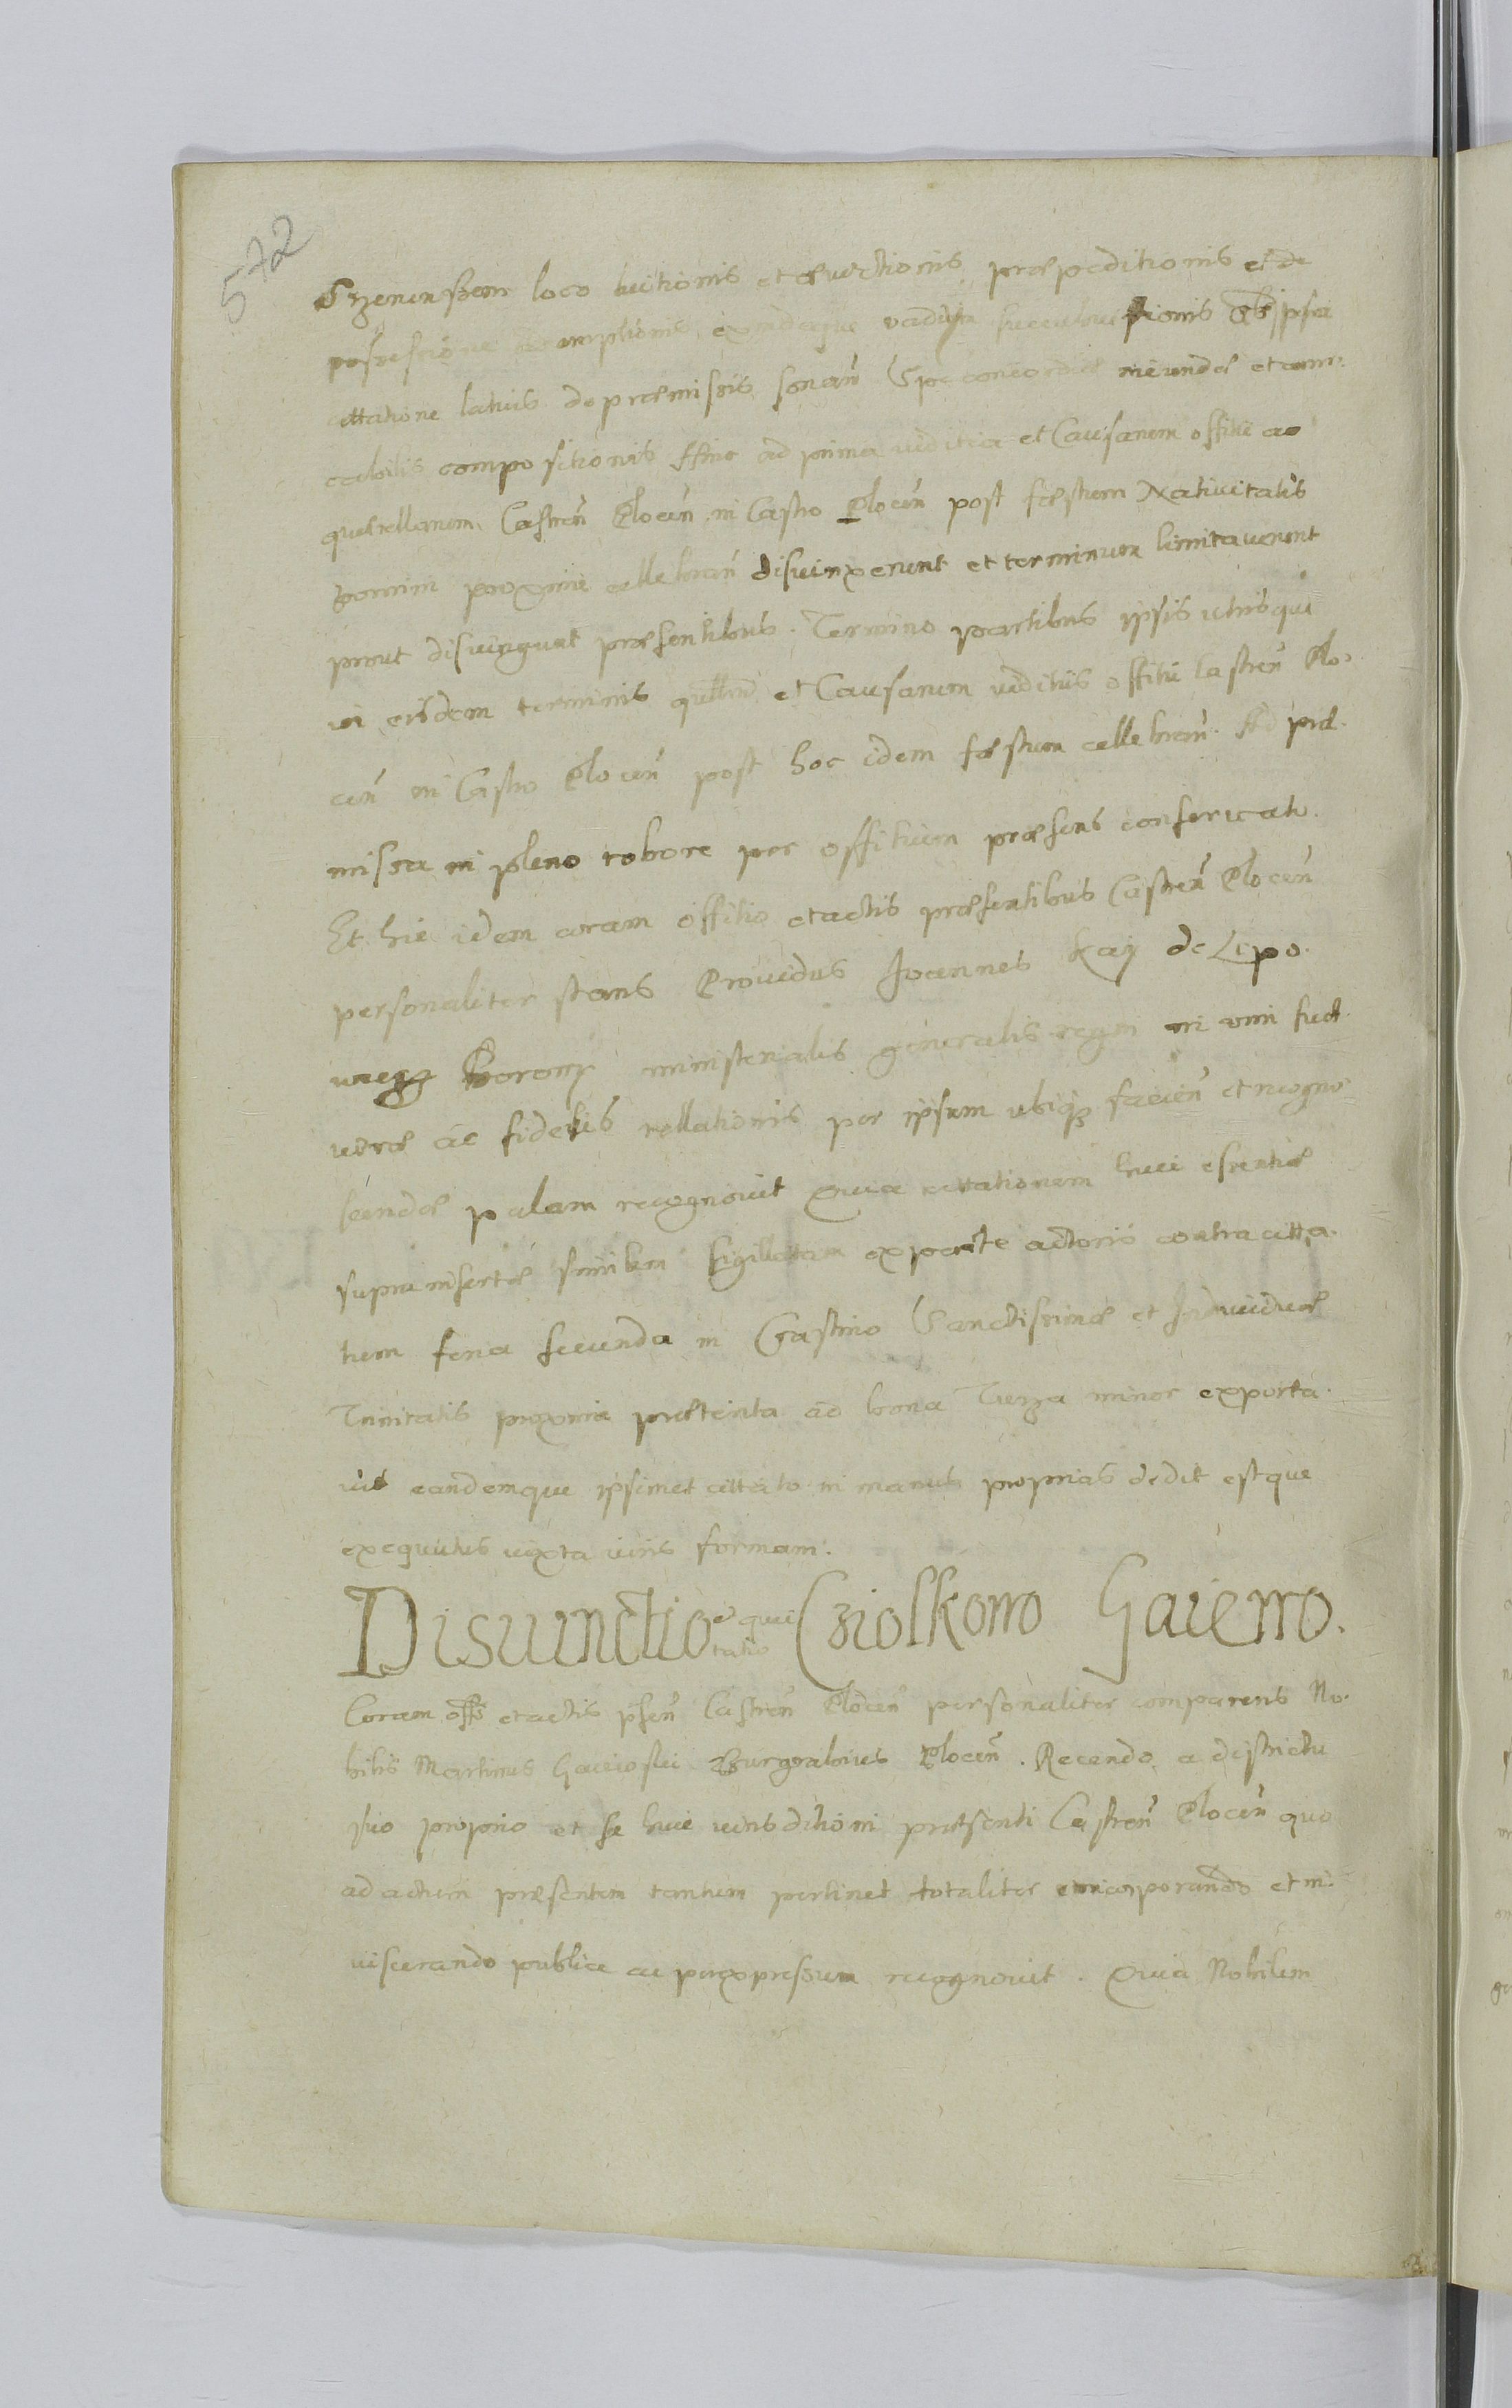 572
loco tuitionis et evictionis, præpeditionis et de
possessione exemptionis exindeque vadii succubuitionis ob ipsa
cittatione latius de præmissis sonan̄ Spe concordiæ ineundæ et ami-
cabilis compositionis hinc ad prima iuditia et Causarum offitii ac
querellarum Castren̄ Plocen̄ in Castro Plocen̄ post fæstum Nativitatis
proxime cellebran̄ disiunxerunt et terminum limitaverunt
prout disiungunt præsentibus. Termino partibus ipsis utrisque
in eisdem terminis quællarū et Causarum iuditiis offitii Castren̄ Plo-
cen̄ in Castro Plocen̄ post hoc idem fæstum cellebran̄. Ad præ-
missa in pleno robore per offitium præsens conservatis.
Et hic idem coram offitio et actis præsentibus Castren̄ Plocen̄
personaliter stans Providus Joannes Kay de Lepo-
ministerialis generalis regni in vim suæ
veræ ac fidelis rellationis per ipsum ubiqȝ facien̄ et recogno-
scendæ palam recognovit Quia cittationem huic essentiæ
supra insertæ similem sigillatam ex parte actoris contra citta-
tum feria secunda in Crastino Sanctissimæ et Individuæ
Trinitatis proxima præterita ad bona minor exporta-
vit eandemque ipsimet cittato in manus proprias dedit estque
exequutus iuxta iuris formam.
Disiunctio et quie tatio Cziolkowo Gaiewo.
Coram offo et actis pn̄sen̄ Castren̄ Plocen̄ personaliter comparens No-
bilis Martinus Gaiewski Burgrabius Plocen̄. Recendo a districtu
suo proprio et se huic iurisditioni præsenti Castren̄ Plocen̄ quo
ad actum præsentem tantum pertinet totaliter incorporando et in-
viscerando publice ac per expressum recognovit. Quia Nobilem